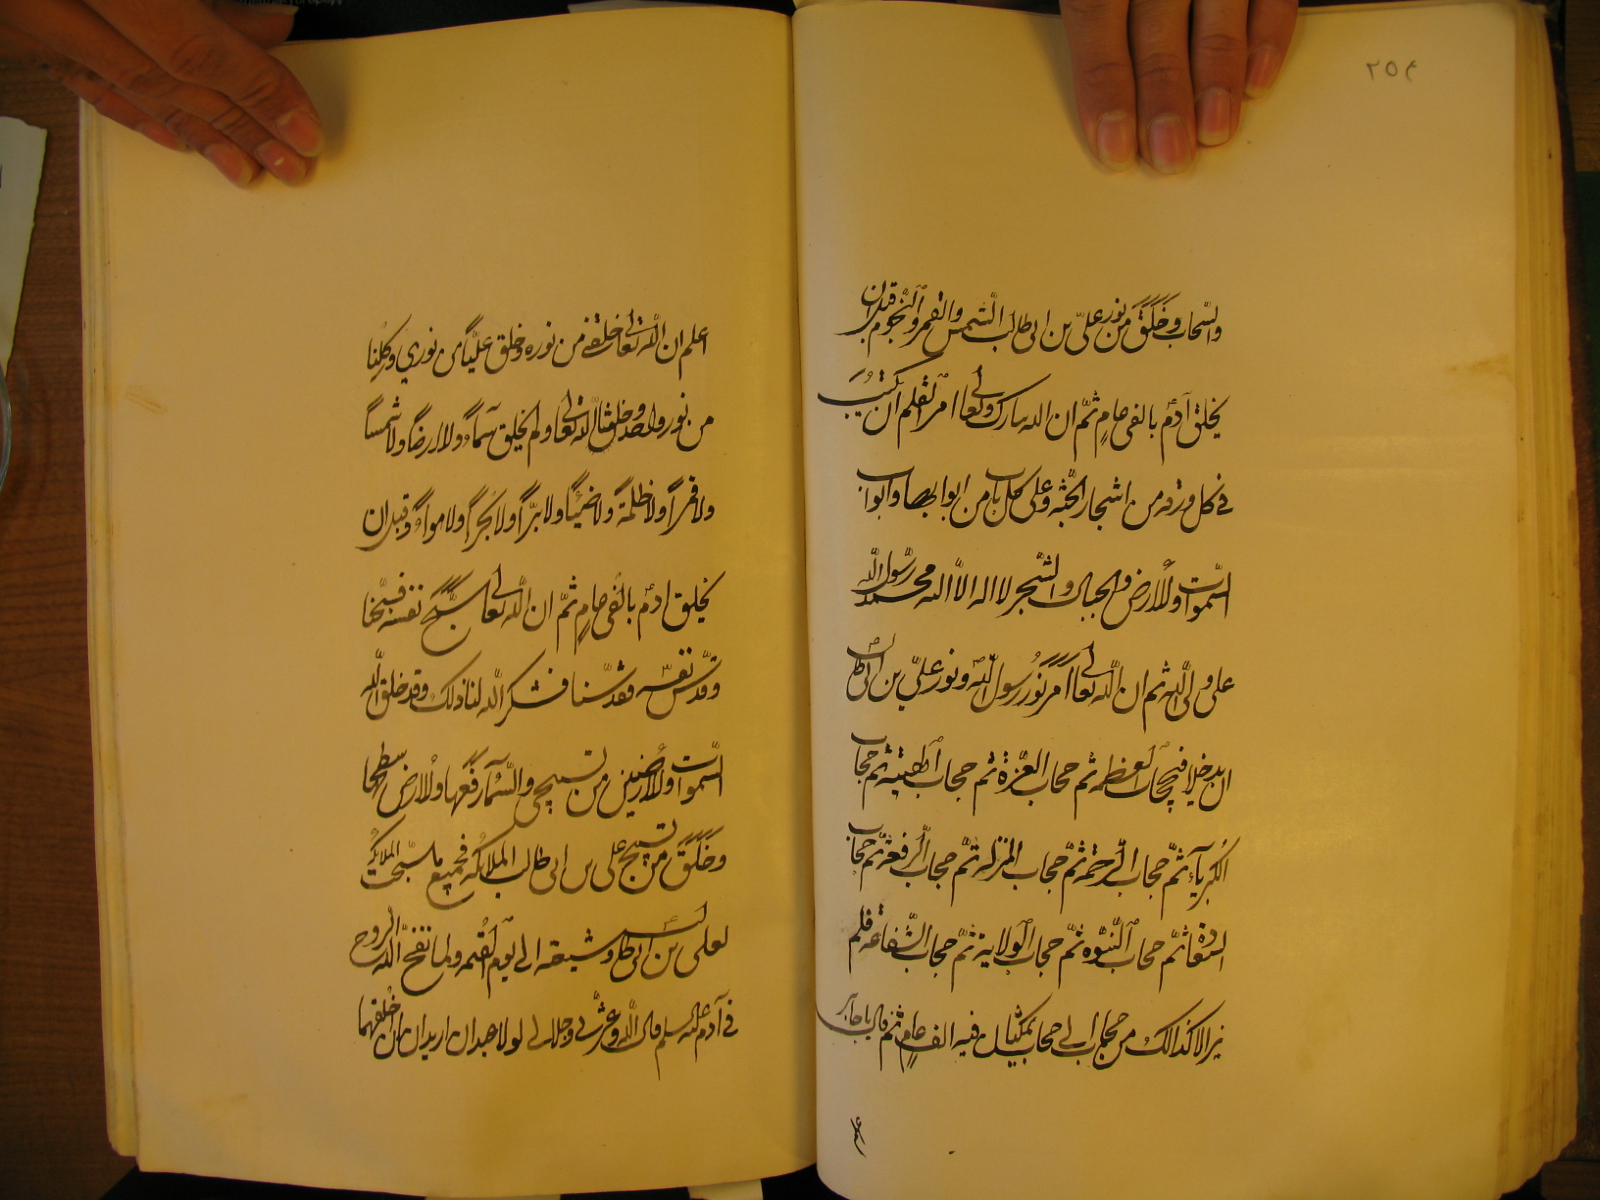 ٢٥٤
والسحاب وخَلَقَ من نور علىّ بن ابى طالب الشمس والقمر والنجوم قبل ان
يخلق آدم بالفى عامٍ ثمّ ان الله تبارك وتعالى امر القلم ان يكتب
فى كل ورقه من اشجار الجنّه وعلى كل باب من ابوابها وابواب
السّموات والارض والجبال والشّجر لا اله الاّ الله محمد رسول الله
على ولى الله ثم ان الله تعالى امر نور رسول الله ونور علىّ بن ابى طالب
ان يدخلا فى حجاب العظمه ثم حجاب العزّة ثم حجاب الهيبة ثم حجاب
الكبرياء ثمّ حجاب الرّحمة ثمّ حجاب المنزله ثمّ حجاب الرفعة ثم حجاب
السعادة ثمّ حجاب النّبوّه ثمّ حجاب الولاية ثمّ حجاب الشّفاعه فلم
يزالا كذالك من حجاب الى حجاب يمكثان فيه الف عامٍ ثم قال يا جابر
اعلم
اعلم ان الله تعالى خلقنى من نوره وخلق عليّاً من نورى وكلّنا
من نور واحد وخلقنا الله تعالى ولم يخلق سماءً ولا ارضاً ولا شمساً
ولا قمراً ولا ظلمةً ولا ضياءً ولا برّاً ولا بحراً ولا هواءً وقبل ان
يخلق ادم بالفى عامٍ ثمّ ان الله تعالى سبّح نفسه فسبّحنا
وقدّس نفسه فقدّسنا فشكر الله لنا ذلك وقد خلق الله
السّموات والارضين من تسبيحى والسّماء رفعها والارض سطحها
وخَلَقَ من تسبيح على بن ابى طالب الملائكه فجميع ما سبّحت الملائكه
لعلى بن ابى طالب وشيعته الى يوم القيمه ولما نفخ الله الروح
فى آدم عليه السلم قال الله وعزّتى وجلالى لولا عبدان اريد ان اخلقهما